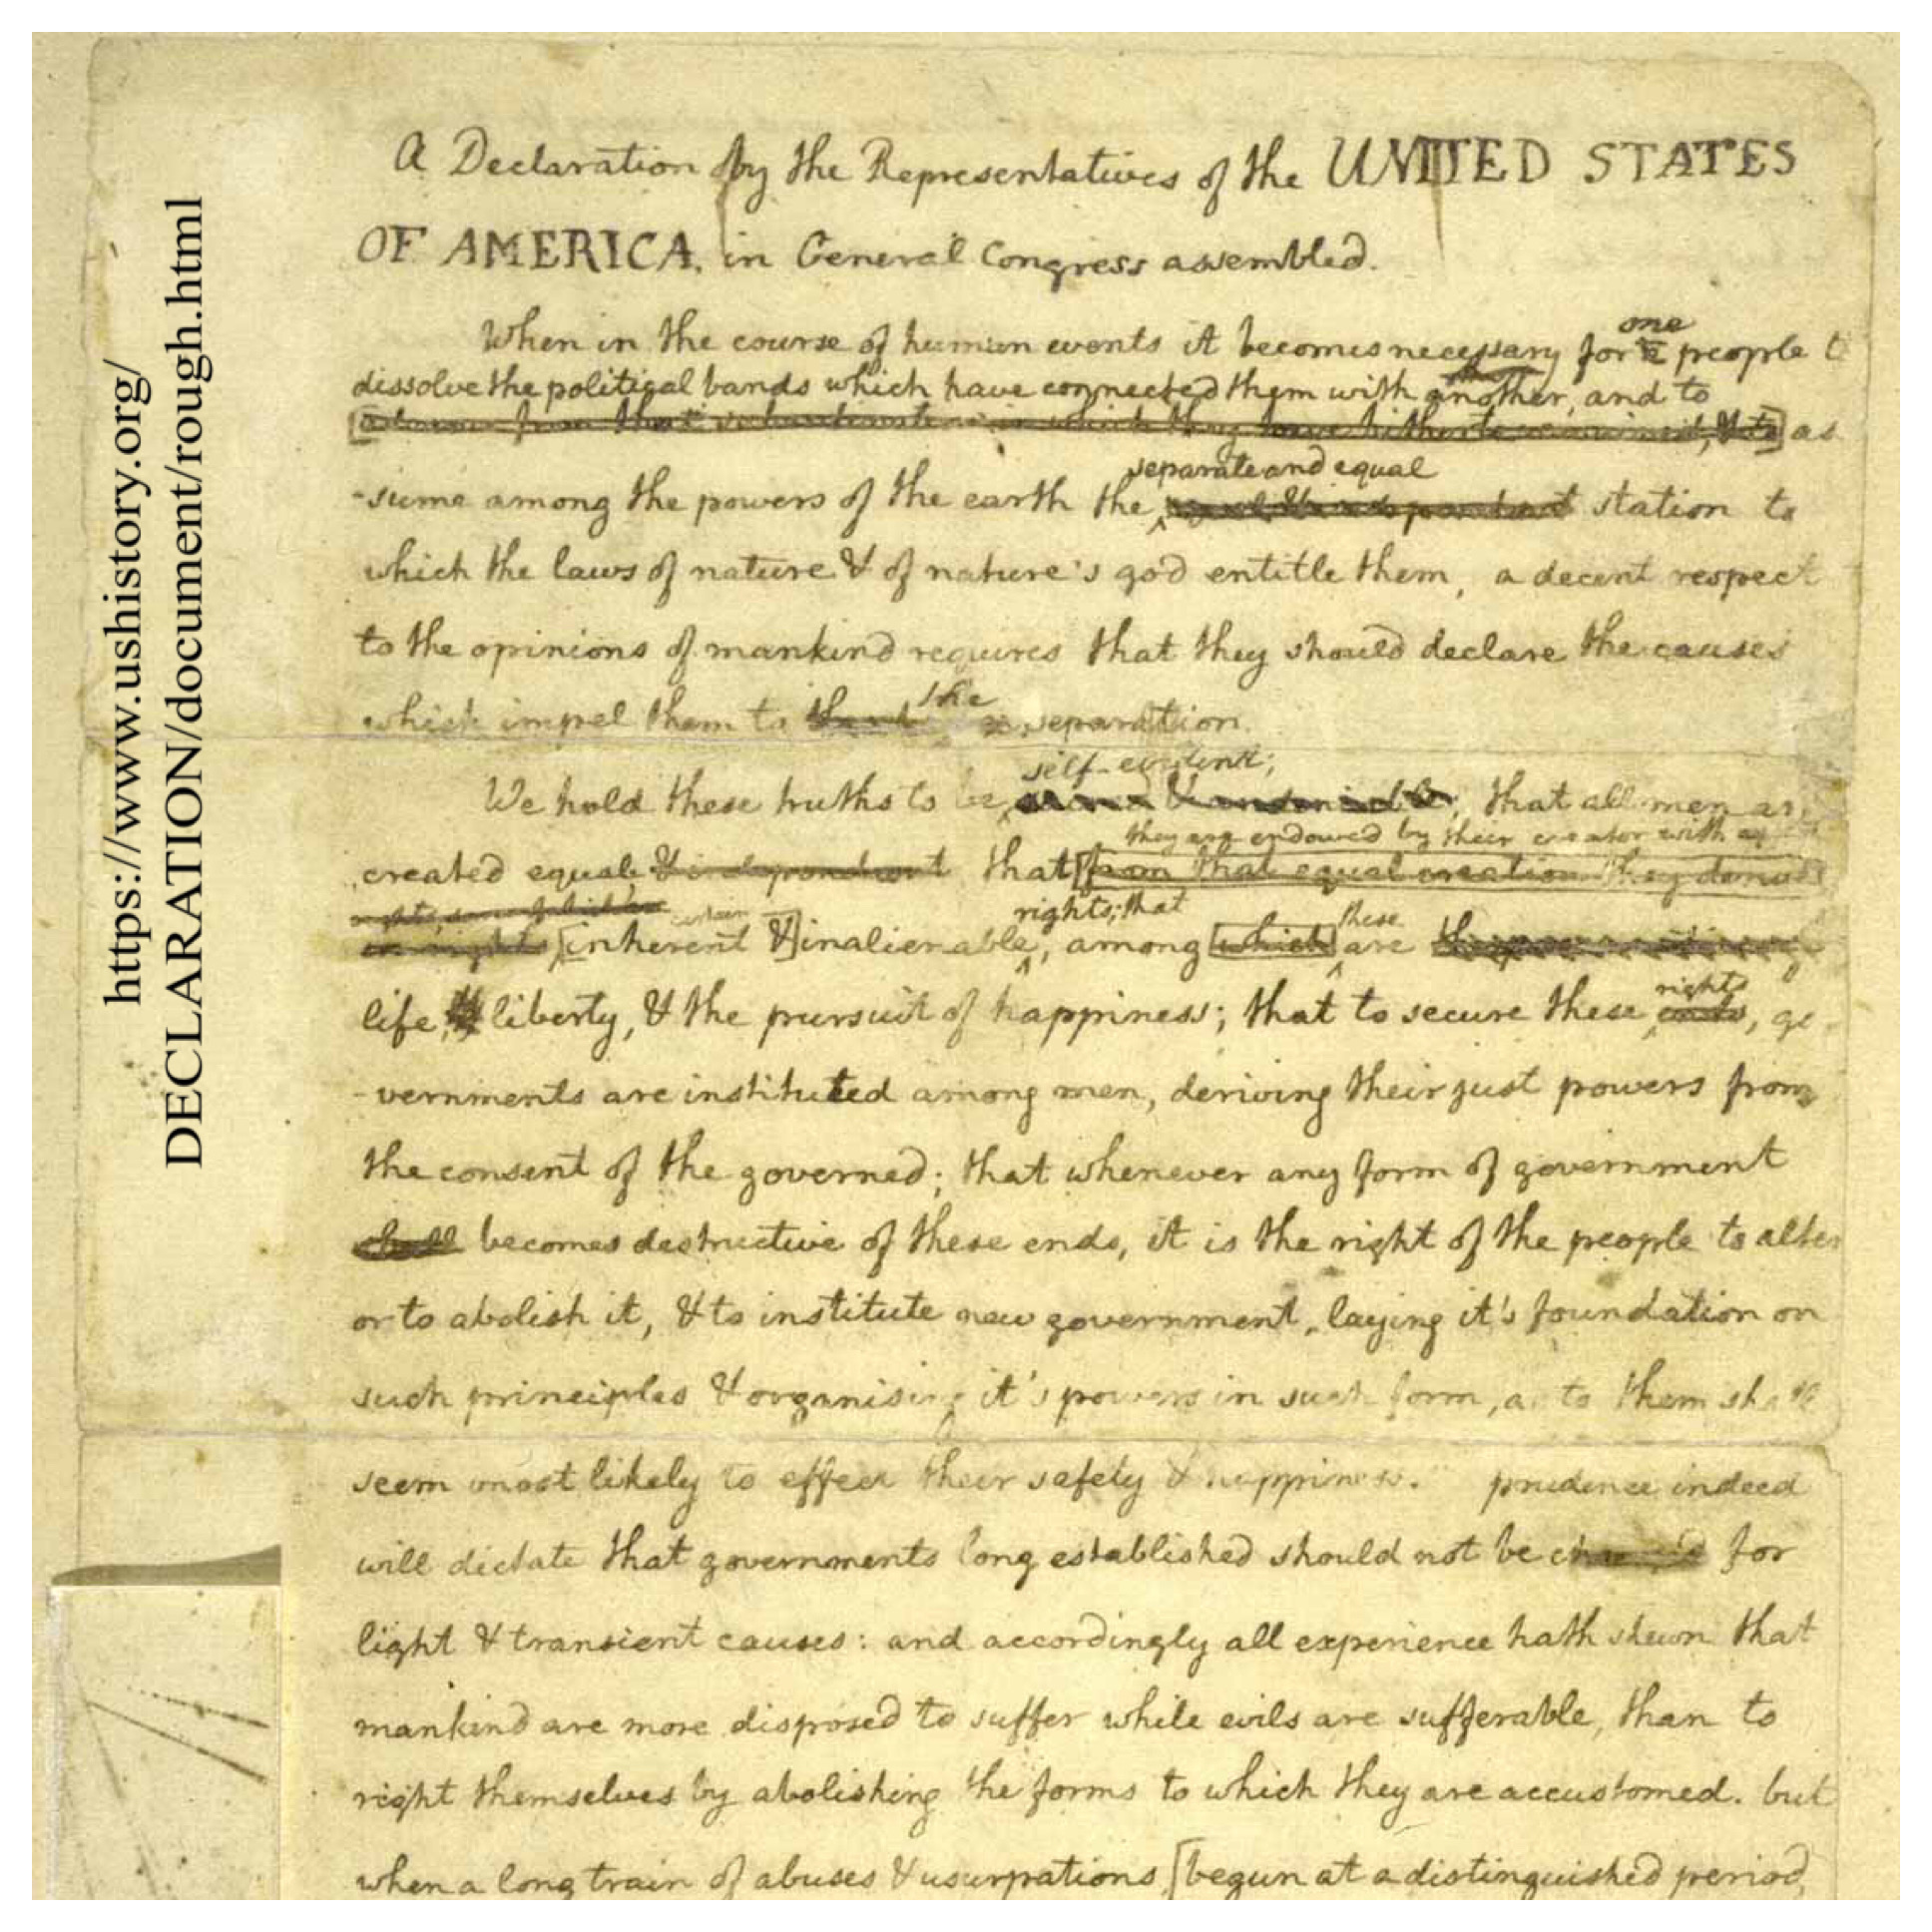 https://www.ushistory.org/
DECLARATION/document/rough.html
a Declaration by the Representatives of the UNITED STATES
OF AMERICA, in General Congress assembled.
one
When in the course of human events it becomes necessary for a people t
dissolve the political bands which have connected them with another, and to
which they have hitherto as
separate and equal
-sume among the powers of the earth the station to
which the laws of nature & of nature's god entitle them, a decent respect
to the opinions of mankind requires that they should declare the causes
the
which impel them to separation.
self-evident;
We hold these truths to be that all men ar
they are endowed by their creator with
created equal & independent that [from that equal creation they
rights; that
certain these
[inherent &] inalienable, among which are
rights
life, liberty, & the pursuit of happiness; that to secure these ends, go
-vernments are instituted among men, deriving their just powers from
the consent of the governed; that whenever any form of government
shall becomes destructive of these ends, it is the right of the people to alter
or to abolish it, & to institute new government, laying it's foundation on
such principles & organising it's powers in such form, as to them shall
seem most likely to effect their safety & happiness. prudence indeed
will dictate that governments long established should not be for
light & transient causes: and accordingly all experience hath shewn that
mankind are more disposed to suffer while evils are sufferable, than to
right themselves by abolishing the forms to which they are accustomed. but
when a long train of abuses & usurpations, [begun at a distinguished period,